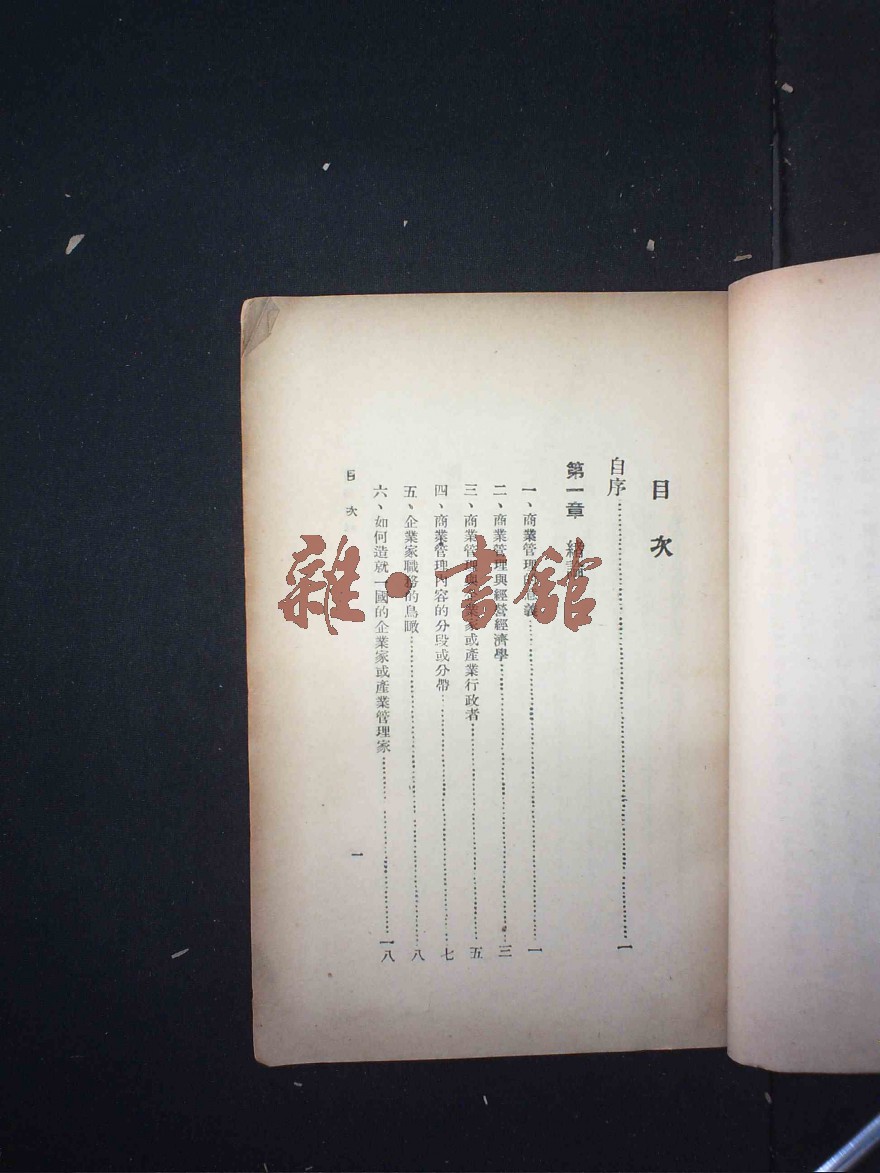 目次
自序……一
第一章 緒論
一、商業管理的意義……一
二、商業管理與經營經濟學……三
三、商業管理與企業家或產業行政者……五
四、商業管理內容的分段或分帶……七
五、企業家職務的鳥瞰……八
六、如何造就一國的企業家或產業管理家……一八
目次
一
雜·書館